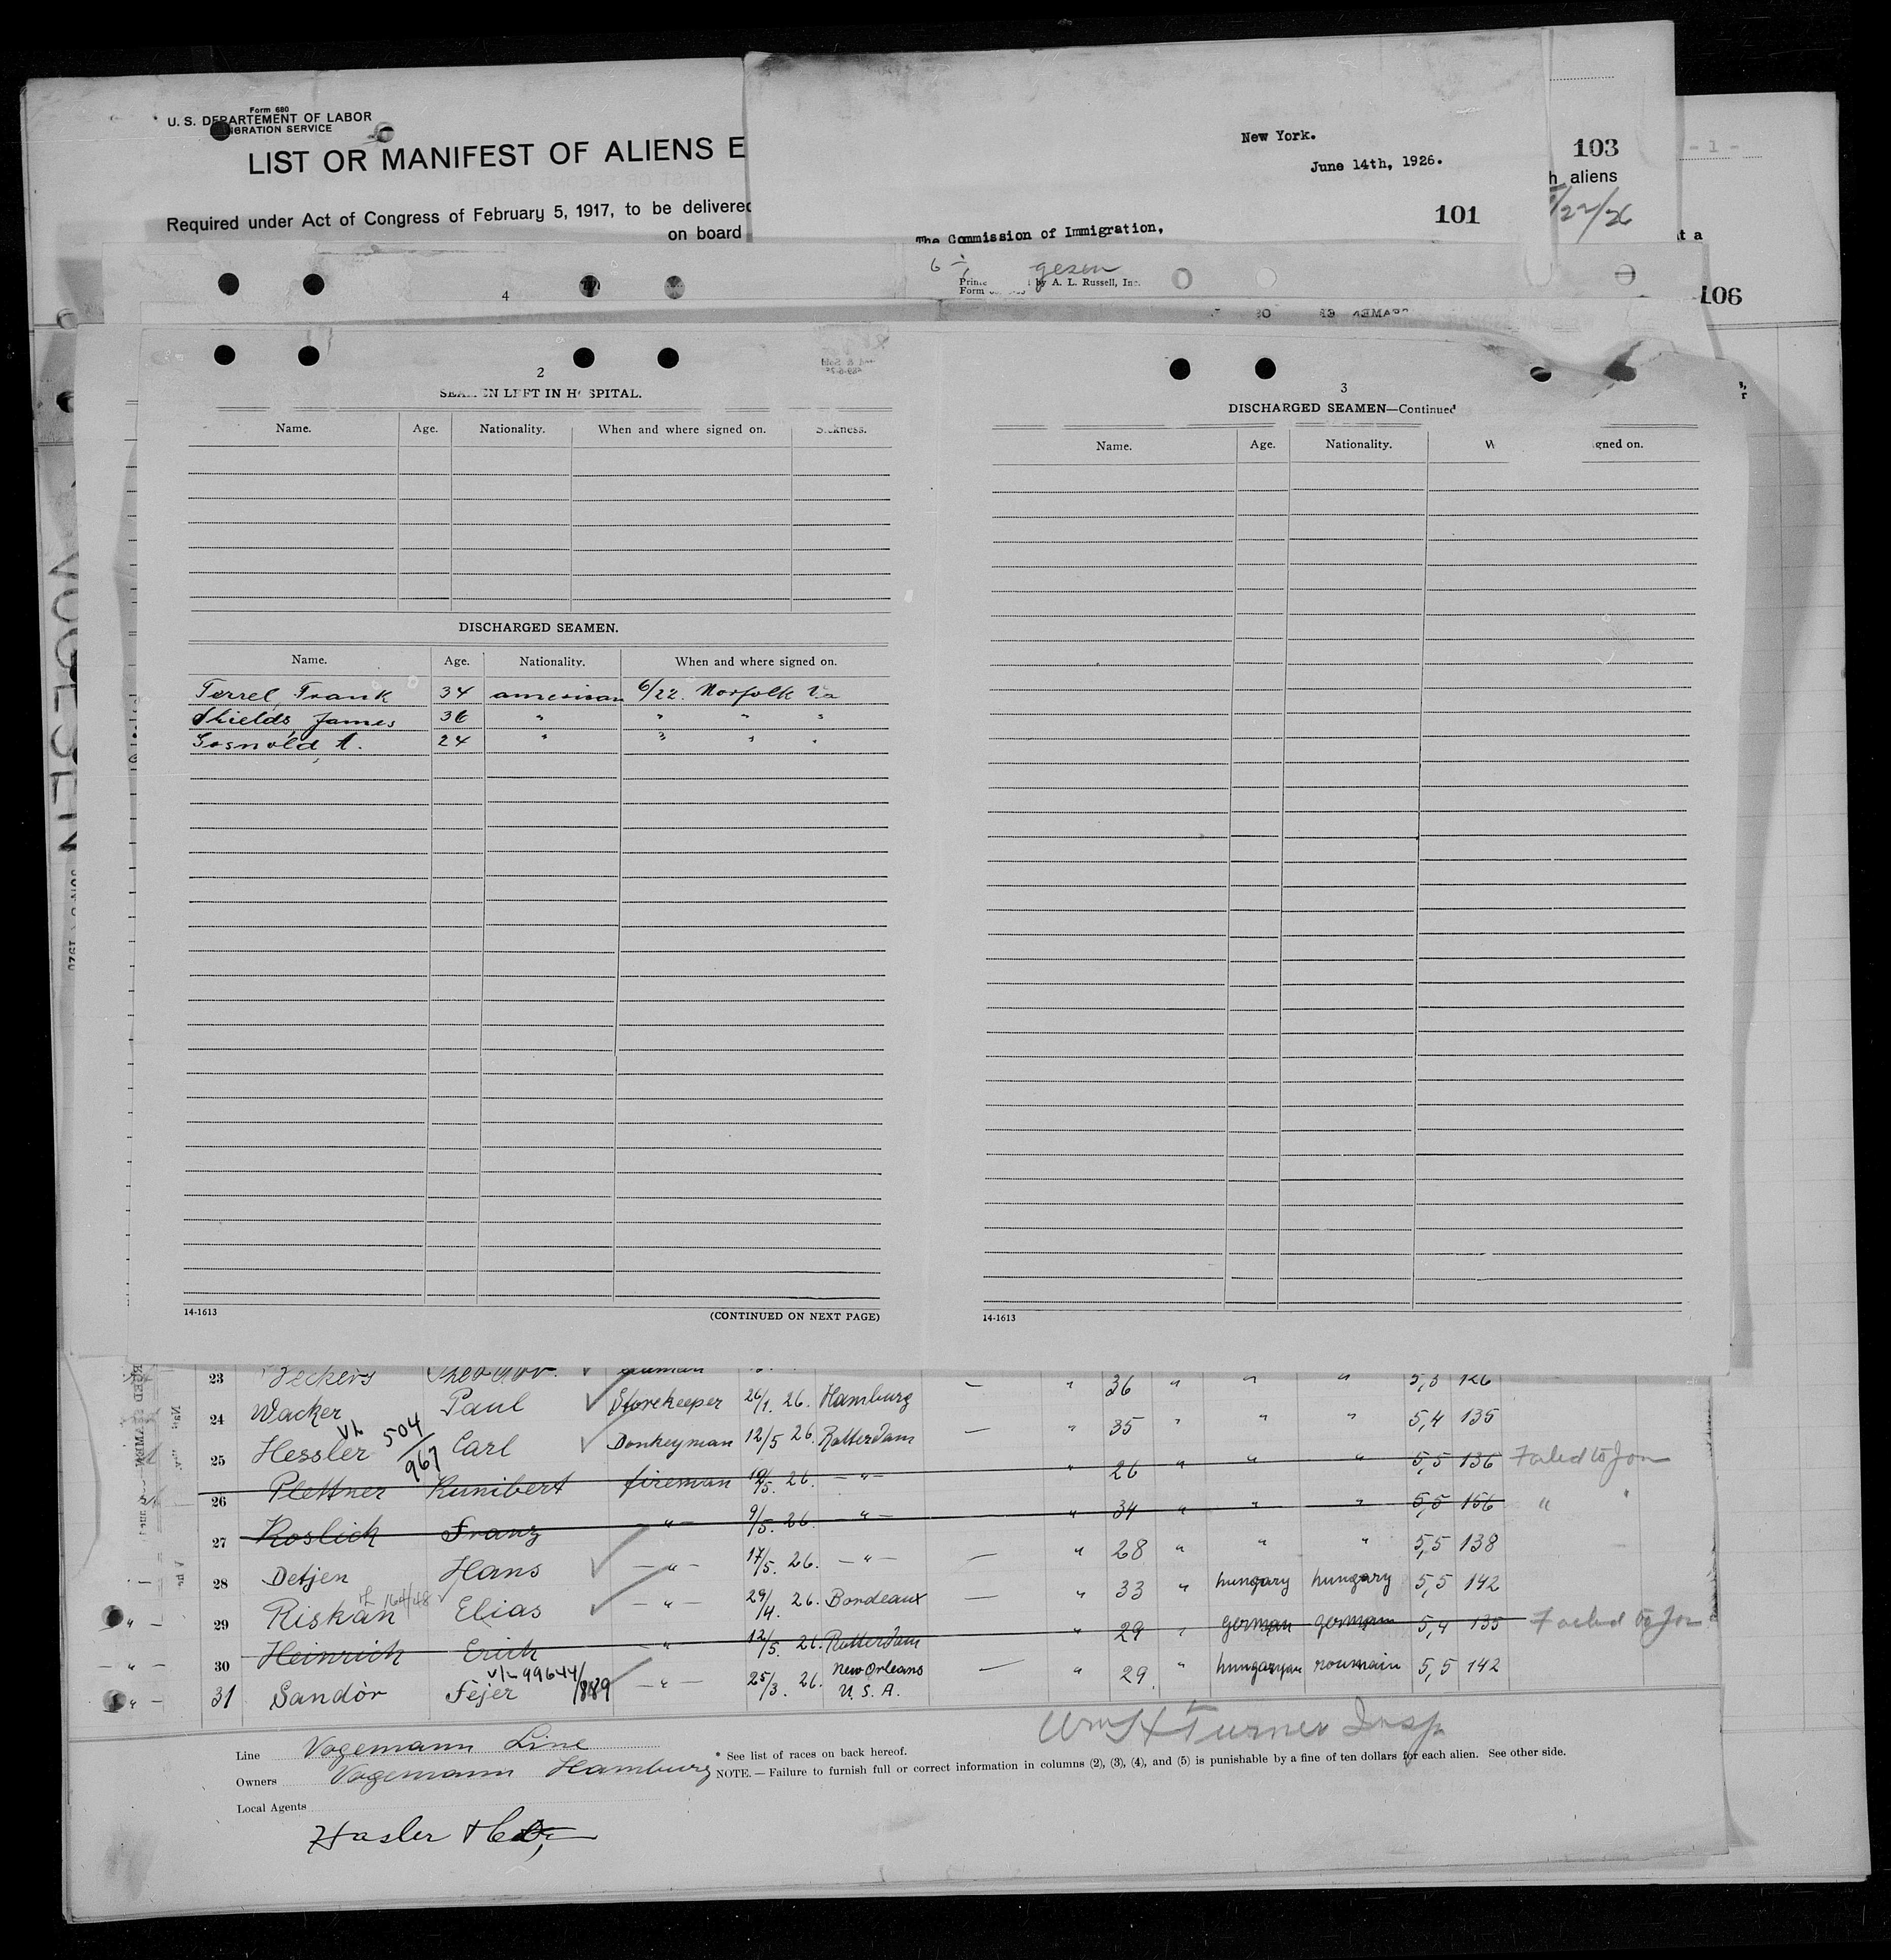 Form 680
U. S. DEPARTEMENT OF LABOR
IGRATION SERVICE
LIST OR MANIFEST OF ALIENS E
Required under Act of Congress of February 5, 1917, to be delivered
on board
New York.
June 14th, 1926.
101
The Commission of Immigration,
103
h aliens
/22/26
- 1 -
t a
106
4
by A. L. Russell, Inc.
Form
2
SEA EN LEFT IN HOSPITAL.
Name. Age. Nationality. When and where signed on. Sickness.
DISCHARGED SEAMEN.
Name. Age. Nationality. When and where signed on.
Terrel, Frank 34 american 6/22. Norfolk Va
Shields, James 36 " " " "
Gosnold, A. 24 " " " "
14-1613 (CONTINUED ON NEXT PAGE)
3
DISCHARGED SEAMEN—Continued
Name. Age. Nationality. W gned on.
14-1613
23 Beckers 36 " " " 5,3 126
24 Wacker Paul Storekeeper 26/1. 26. Hamburg — " 35 " " " 5,4 135
25 Hessler VL 504/967 Carl Donkeyman 12/5 26. Rotterdam — " 26 " " " 5,5 136 Failed to Join
26 Plettner Kunibert fireman 26. — " — " 34 " " " 5,5 156 " "
27 Koslick Franz — " — 9/5. 26. — " — " 28 " " " 5,5 138
28 Detjen Hans — " — 17/5. 26. — " — — " 33 " hungary hungary 5,5 142
29 Riskan Elias — " — 29/4. 26. Bordeaux — " 29 " german german 5,4 135 Failed to Join
30 Heinrich Erich " 12/5. 26. Rotterdam
31 Sandòr Fejer V/L 99644/889 — " — 25/3. 26. New Orleans U.S.A. — " 29. " hungaryan roumain 5,5 142
Wm H Turner Insp
Line Vogemann Line
* See list of races on back hereof.
Owners Vogemann Hamburg
NOTE.—Failure to furnish full or correct information in columns (2), (3), (4), and (5) is punishable by a fine of ten dollars for each alien. See other side.
Local Agents
Hasler & Co,